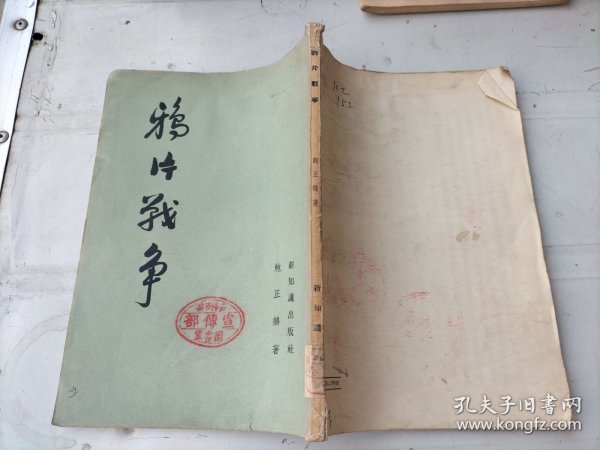 鴉片戰争
新知識出版社
鮑正鵠著
宣傳部
圖書室
鴉片戰爭
鮑正鵠著
新知識
KZ
152
孔夫子旧书网
www.kongfz.com